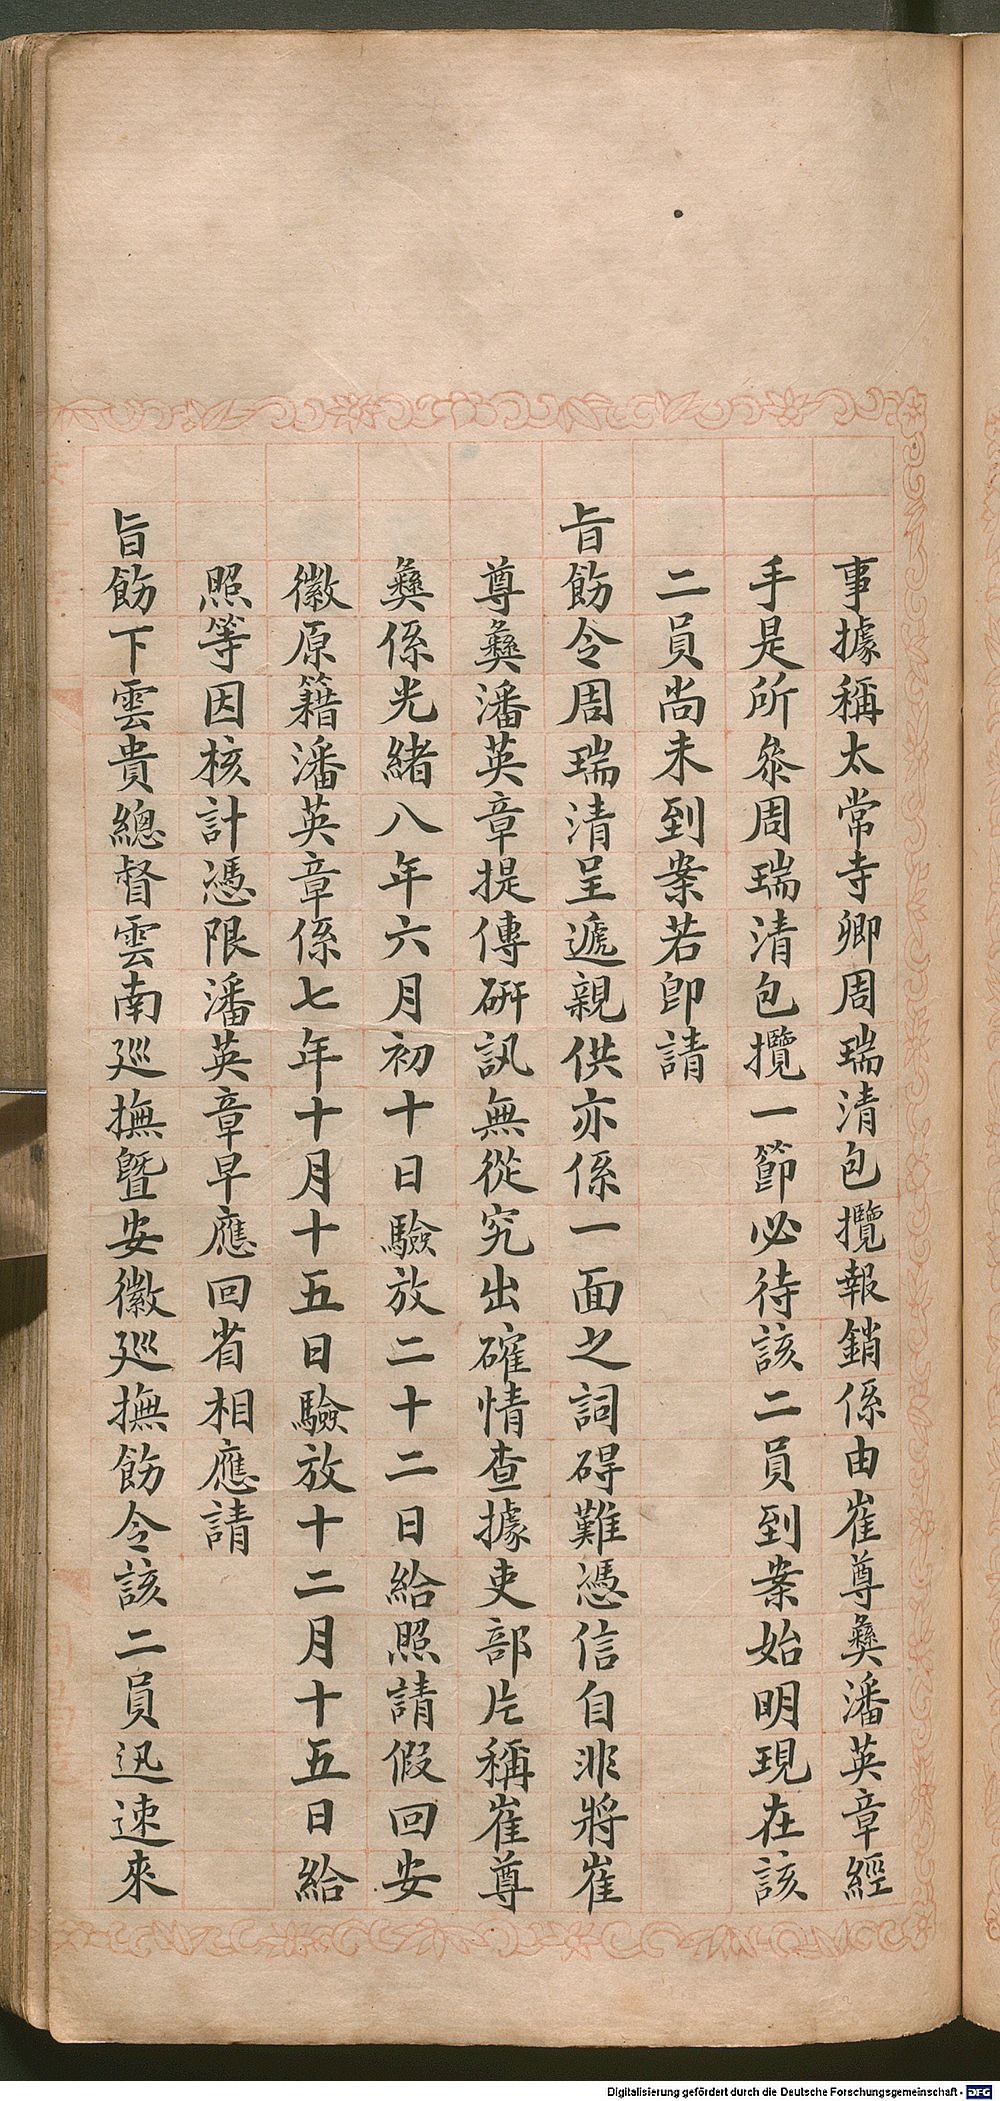 事據稱太常寺卿周瑞清包攬報銷係由崔尊彝潘英章經
手是所叅周瑞清包攬一節必待該二員到案始明現在該
二員尚未到案若即請
旨飭令周瑞清呈遞親供亦係一面之詞碍難憑信自非將崔
尊彝潘英章提傳研訊無從究出確情查據吏部片稱崔尊
彝係光緒八年六月初十日驗放二十二日給照請假回安
徽原籍潘英章係七年十月十五日驗放十二月十五日給
照等因核計憑限潘英章早應回省相應請
旨飭下雲貴總督雲南巡撫暨安徽巡撫飭令該二員迅速來
Digitalisierung gefördert durch die Deutsche Forschungsgemeinschaft - DFG